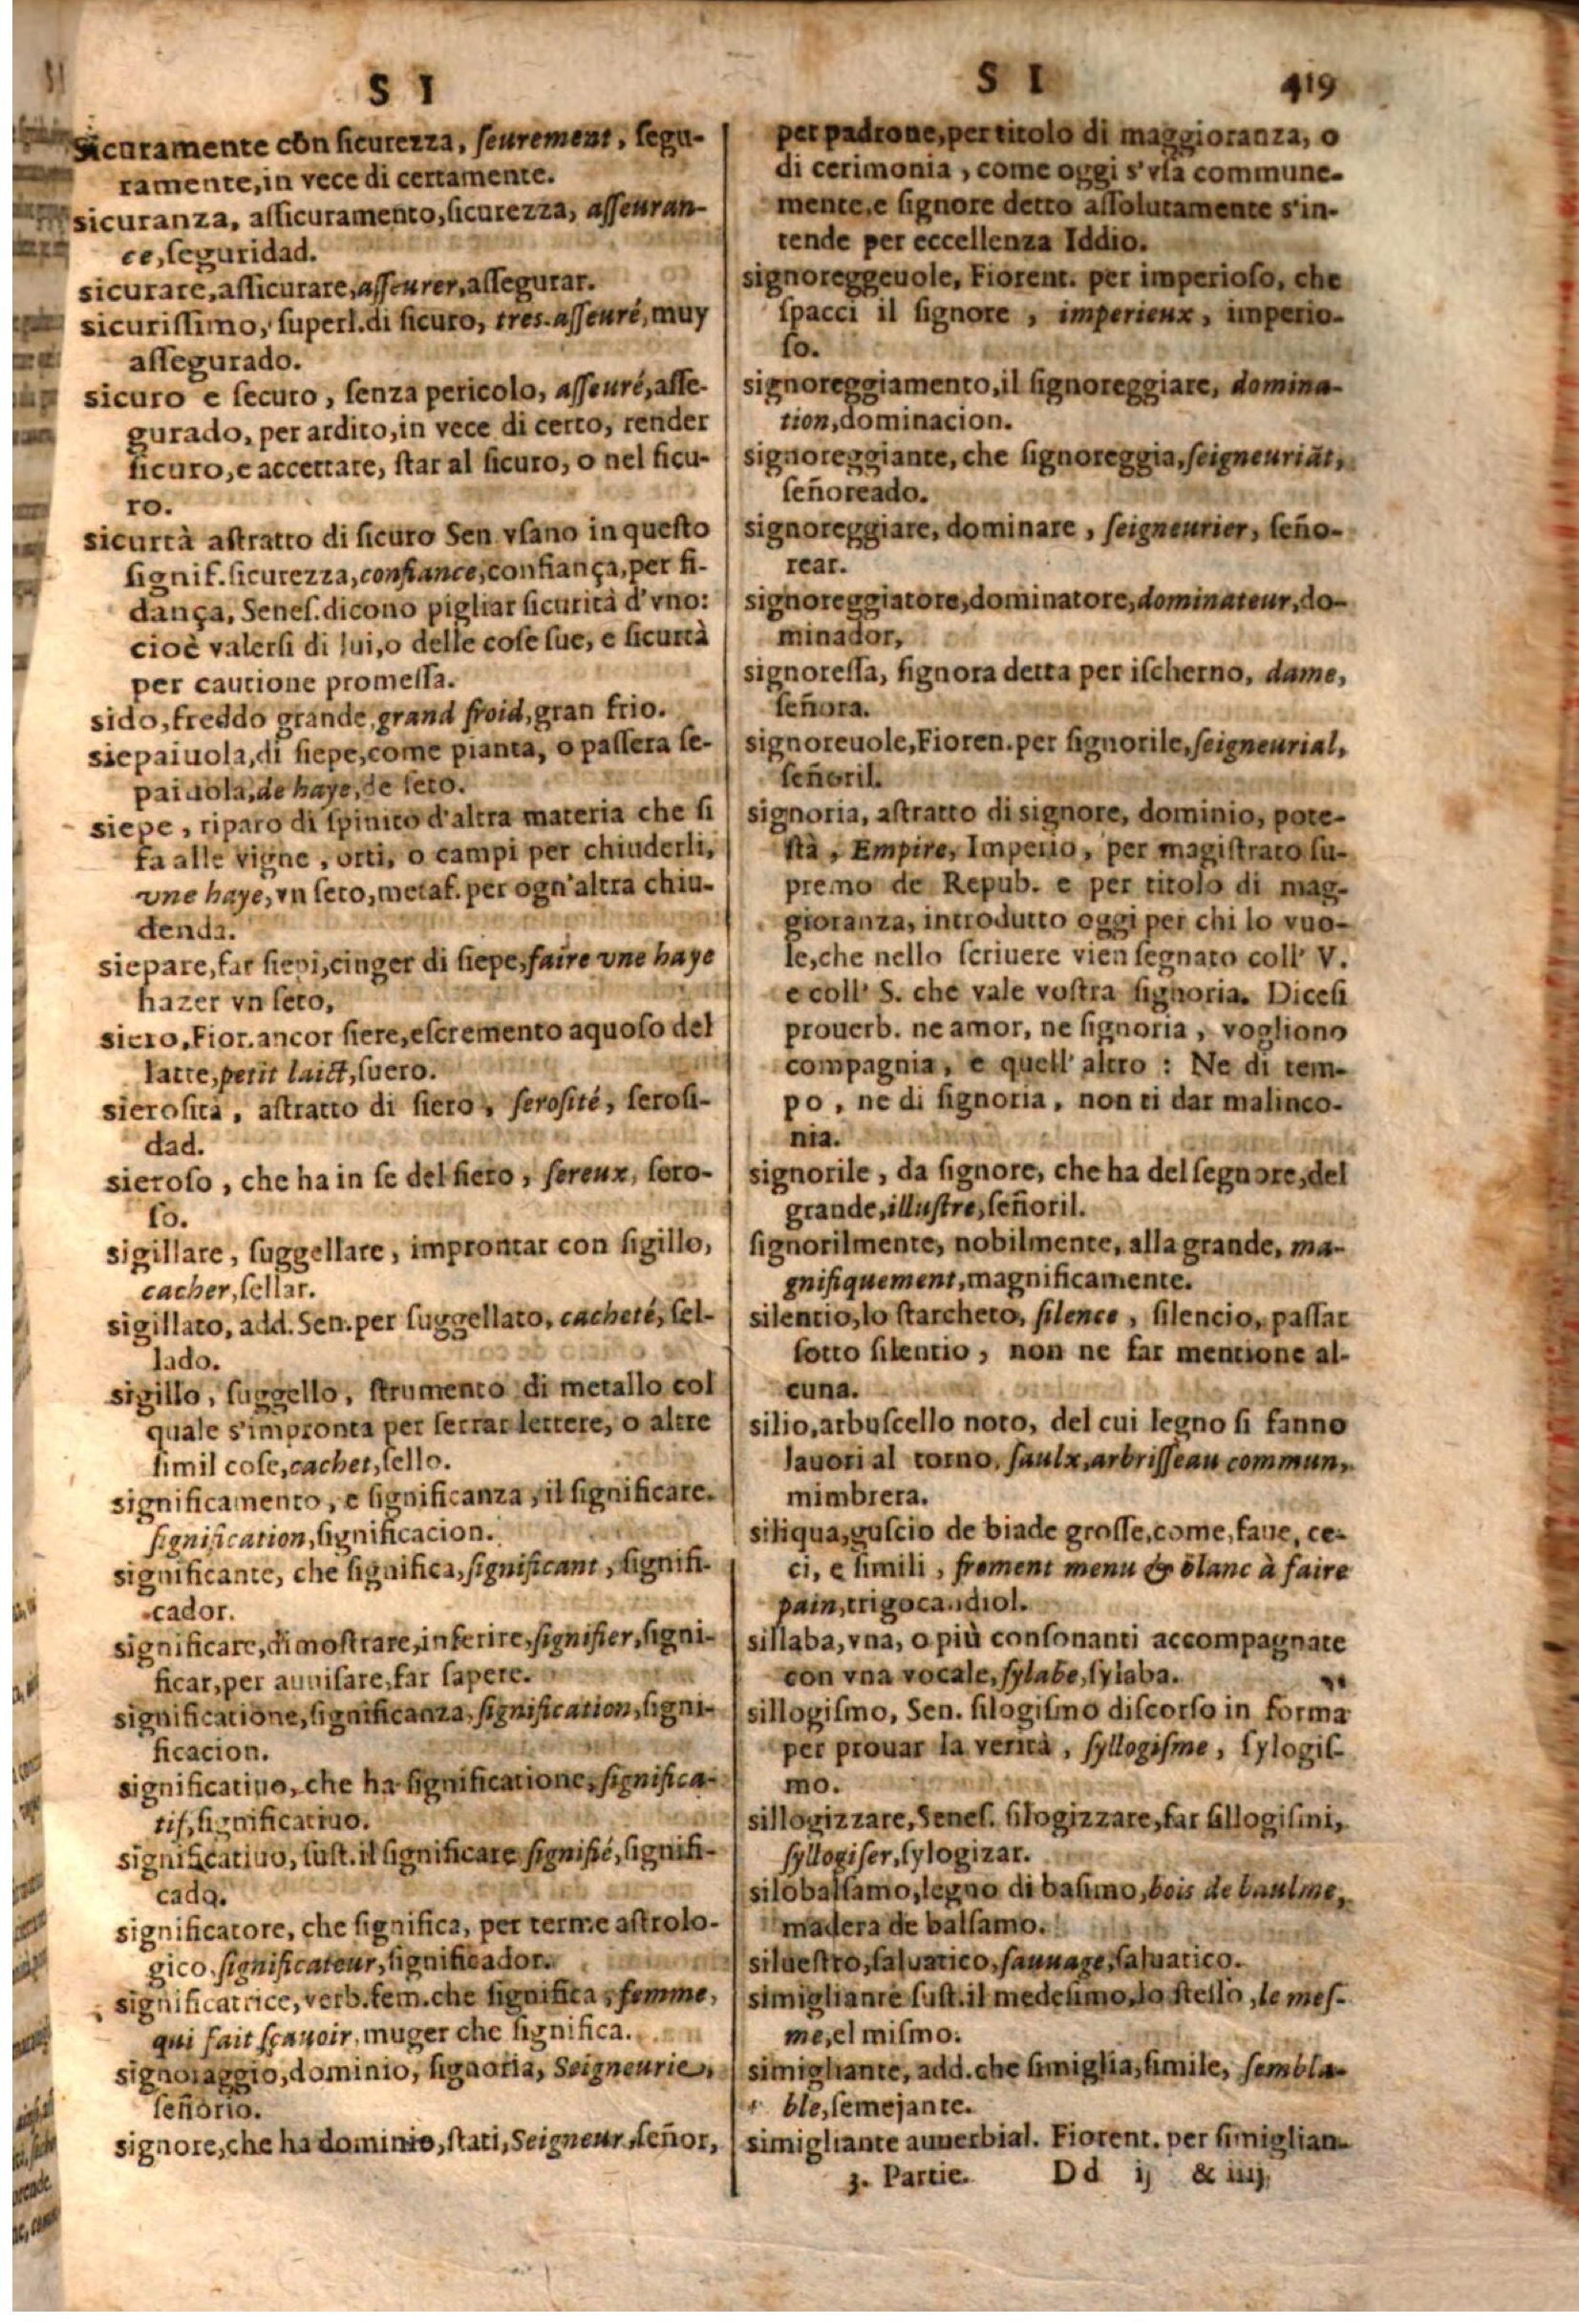 S I
Sicuramente cõn ſicurezza, ſeurement, ſegu-
ramente,in vece di certamente.
sicuranza, aſſicuramento,ſicurezza, aſſeuran-
ce,ſeguridad.
sicurare,aſſicurare,aſſeurer,aſſegurar.
sicuriſſimo, ſuperl.di ſicuro, tres-aſſeuré,muy
aſſegurado.
sicuro e ſecuro, ſenza pericolo, aſſeuré,aſſe-
gurado, per ardito,in vece di certo, render
ſicuro,e accertare, ſtar al ſicuro, o nel ſicu-
ro.
sicurtà aſtratto di ſicuro Sen vſano in queſto
ſignif.ſicurezza,confiance,confiança,per fi-
dança, Seneſ.dicono pigliar ſicurità d'vno:
cioè valerſi di lui,o delle coſe ſue, e ſicurtà
per cautione promeſſa.
sido,freddo grande,grand froid,gran frio.
siepaiuola,di ſiepe,come pianta, o paſſera ſe-
paiuola,de haye,de ſeto.
siepe, riparo di ſpinito d'altra materia che ſi
fa alle vigne, orti, o campi per chiuderli,
vne haye,vn ſeto,metaf.per ogn'altra chiu-
denda.
siepare,far ſiepi,cinger di ſiepe,faire vne haye
hazer vn ſeto,
siero,Fior.ancor ſiere,eſcremento aquoſo del
latte,petit laict,ſuero.
sieroſità, aſtratto di ſiero, ſeroſité, ſeroſi-
dad.
sieroſo, che ha in ſe del ſiero, ſereux, ſero-
ſo.
sigillare, ſuggellare, improntar con ſigillo,
cacher,ſellar.
sigillato, add. Sen.per ſuggellato, cacheté, ſel-
lado.
sigillo, ſuggello, ſtrumento di metallo col
quale s'impronta per ſerrar lettere, o altre
ſimil coſe,cachet,ſello.
significamento, e ſignificanza, il ſignificare.
ſignification,ſignificacion.
significante, che ſignifica,ſignificant, ſignifi-
cador.
significare,dimoſtrare,inferire,ſignifier,ſigni-
ficar,per auuiſare,far ſapere.
significatione,ſignificanza,ſignification,ſigni-
ficacion.
significatiuo, che ha ſignificatione,ſignifica-
tif,ſignificatiuo.
significatiuo, ſuſt.il ſignificare ſignifié,ſignifi-
cado.
significatore, che ſignifica, per terme aſtrolo-
gico,ſignificateur,ſignificador.
significatrice, verb.fem.che ſignifica, femme,
qui fait ſçauoir,muger che ſignifica.
signoraggio,dominio, ſignoria, Seigneurie,
ſeñorio.
signore,che ha dominio,ſtati,Seigneur,ſeñor,
S I 419
per padrone,per titolo di maggioranza, o
di cerimonia, come oggi s'vſa commune-
mente,e ſignore detto aſſolutamente s'in-
tende per eccellenza Iddio.
signoreggeuole, Fiorent. per imperioſo, che
ſpacci il ſignore, imperieux, imperio-
ſo.
signoreggiamento,il ſignoreggiare, domina-
tion,dominacion.
signoreggiante, che ſignoreggia,ſeigneuriãt,
ſeñoreado.
signoreggiare, dominare, ſeigneurier, ſeño-
rear.
signoreggiatore,dominatore,dominateur,do-
minador,
signoreſſa, ſignora detta per iſcherno, dame,
ſeñora.
signoreuole,Fioren.per ſignorile,ſeigneurial,
ſeñoril.
signoria, aſtratto di signore, dominio, pote-
ſtà, Empire, Imperio, per magiſtrato ſu-
premo de Repub. e per titolo di mag-
gioranza, introdutto oggi per chi lo vuo-
le,che nello ſcriuere vien ſegnato coll' V.
e coll' S. che vale voſtra ſignoria. Diceſi
prouerb. ne amor, ne ſignoria, vogliono
compagnia, e quell' altro : Ne di tem-
po, ne di ſignoria, non ti dar malinco-
nia.
signorile, da ſignore, che ha del ſegnore,del
grande,illuſtre,ſeñoril.
ſignorilmente, nobilmente, alla grande, ma-
gnifiquement,magnificamente.
silentio,lo ſtarcheto, ſilence, ſilencio, paſſar
ſotto ſilentio, non ne far mentione al-
cuna.
silio,arbuſcello noto, del cui legno ſi fanno
lauori al torno, ſaulx,arbriſſeau commun,
mimbrera.
siliqua,guſcio de biade groſſe,come,faue, ce-
ci, e ſimili, froment menu & blanc à faire
pain,trigocandiol.
sillaba,vna, o più conſonanti accompagnate
con vna vocale,ſylabe,ſylaba.
sillogiſmo, Sen. ſilogiſmo diſcorſo in forma
per prouar la verità, ſyllogiſme, ſylogiſ-
mo.
sillogizzare,Seneſ. ſilogizzare,far ſillogiſmi,
ſyllogiſer,ſylogizar.
silobalſamo,legno di baſimo,bois de baulme,
madera de balſamo.
siluestro,ſaluatico,ſauuage,ſaluatico.
simigliante ſuſt.il medeſimo,lo ſteſſo,le meſ-
me,el miſmo.
simigliante, add.che ſimiglia,ſimile, ſembla-
ble,ſemejante.
simigliante auuerbial. Fiorent. per ſimiglian-
3. Partie. Dd ij & iiij